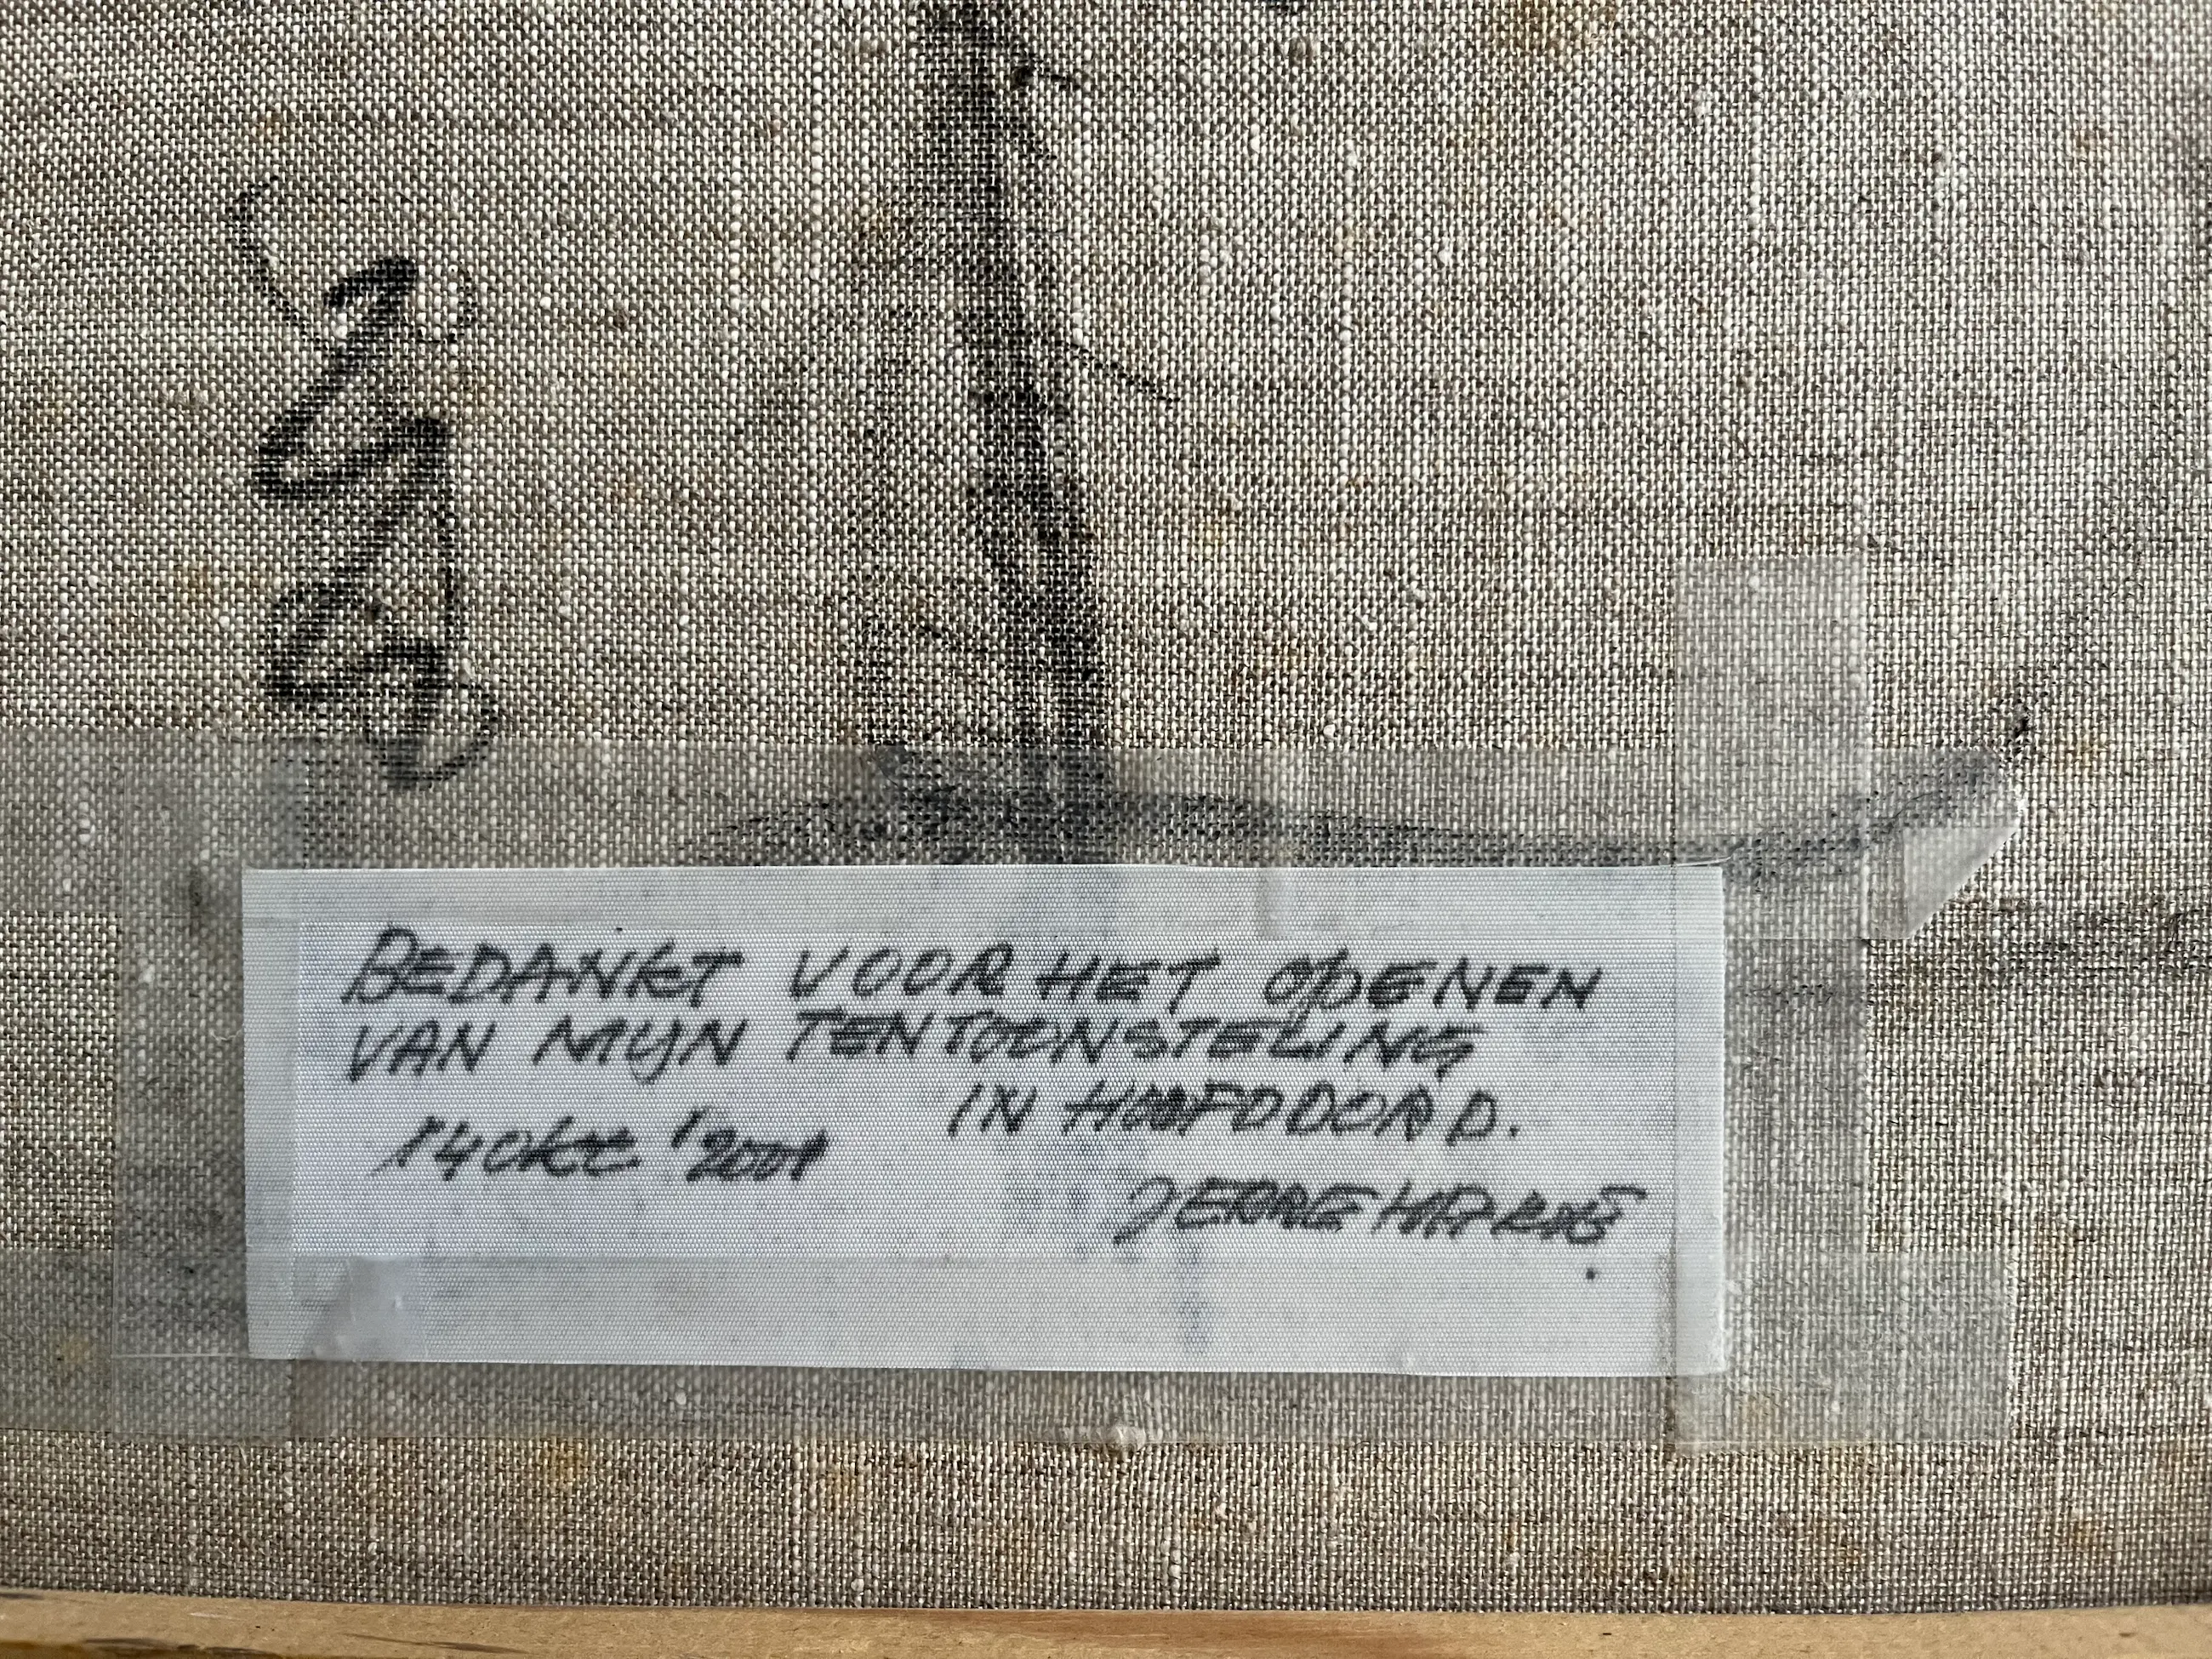 BEDANKT VOOR HET OPENEN
VAN MIJN TENTOONSTELLING
IN HOOFDDORP.
14 okt '2001
JEROME